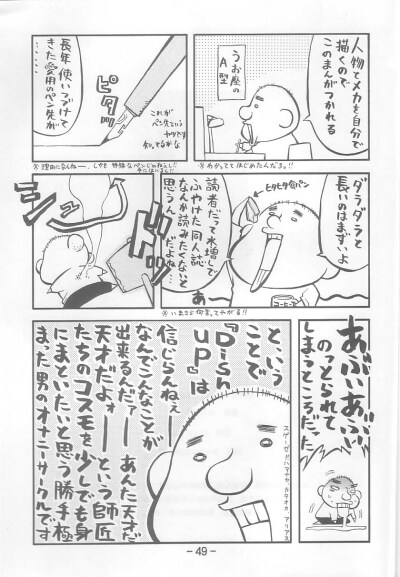 人物とメカを自分で
描くので
このまんがつかれる
うお座の
A型
※わかってて はじめたんだろ。!!
長年 使いつづけて
きた愛用のペン先が
……
ピタッ
これが
ペン先という
ヤツです
知ってるかな
ダラダラと
長いのはまずいよ
ピタピタ食パン
読者だって水増しで
ふやけた同人誌
なんか読みたくないと
思うん だよね…
あ〜
コーヒー
※いまさら何言ってやがる!!
あぶいあぶい
のっとられて
しまっところだった
ということで
『Dish
up』は
信じらんねぇ――
なんでこんなことが
出来るんだァ――あんた天才だ
天才だよォ――という師匠
たちのコスモを少しでも身
にまといたいと思う勝手極
まった男のオナニーサークルです
スゲーゼ!!ハマチャ、カタオカ、アリアス
-49-